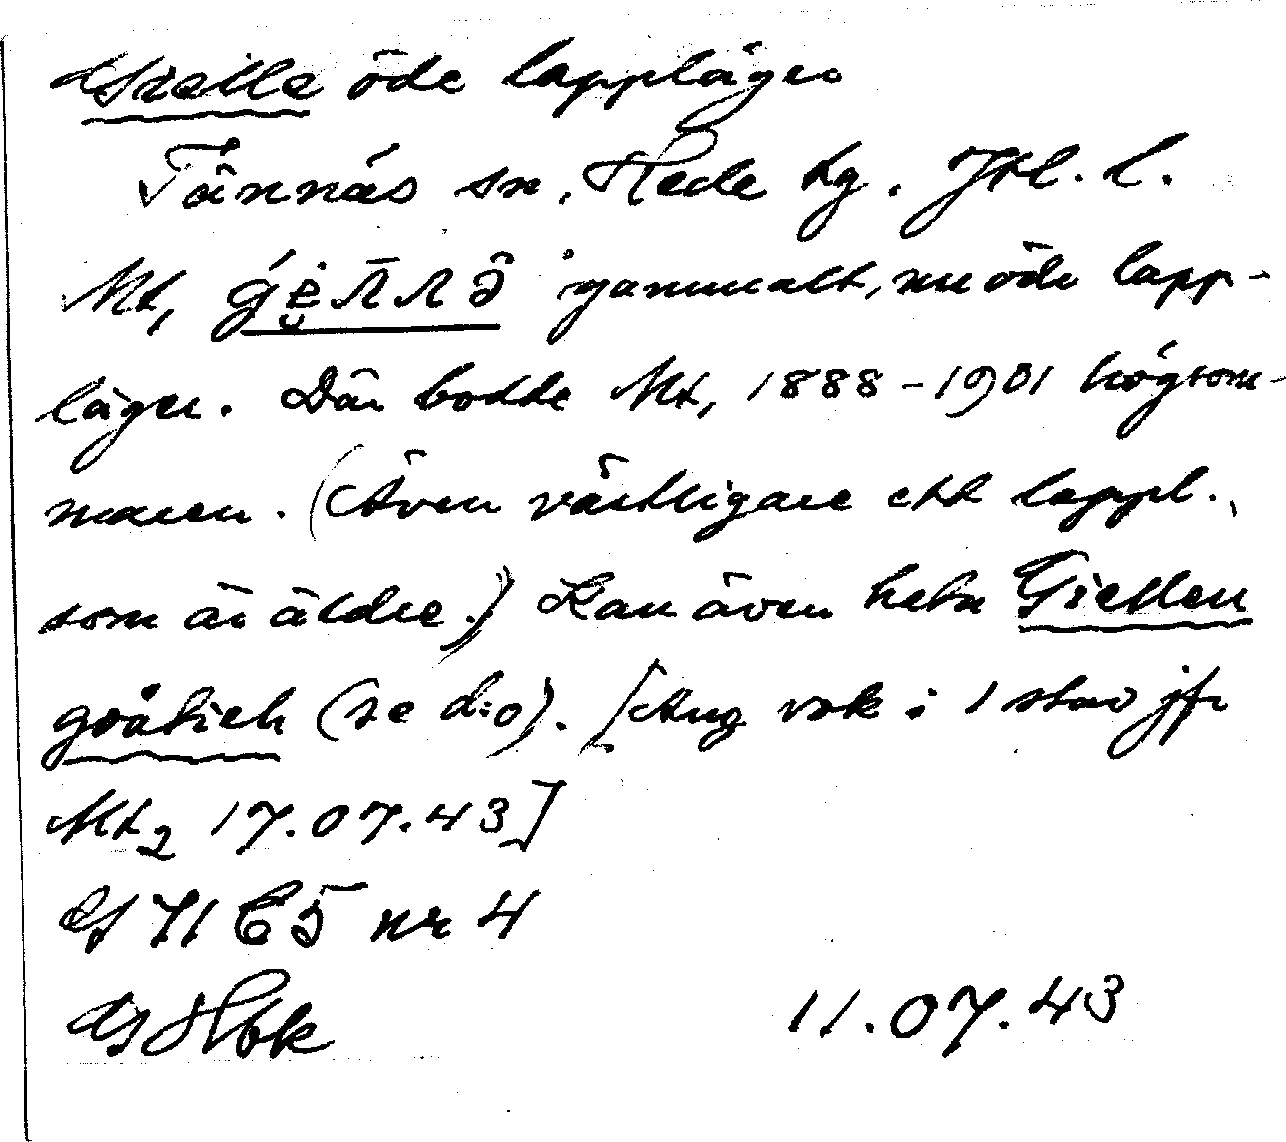 Gielle öde lappläger
Tännäs sn, Hede tg. Jtl. l.
Mt, gammalt, nu öde lapp-
läger. Där bodde Mt, 1888-1901 högsom-
maren. (Även västligare ett lappl.,
som är äldre.) Kan även heta Giellen
gråtieh (se d:o). [Ang vok i 1 stav jfr
Mt2 17.07.43]
71 C5 nr 4
11.07.43